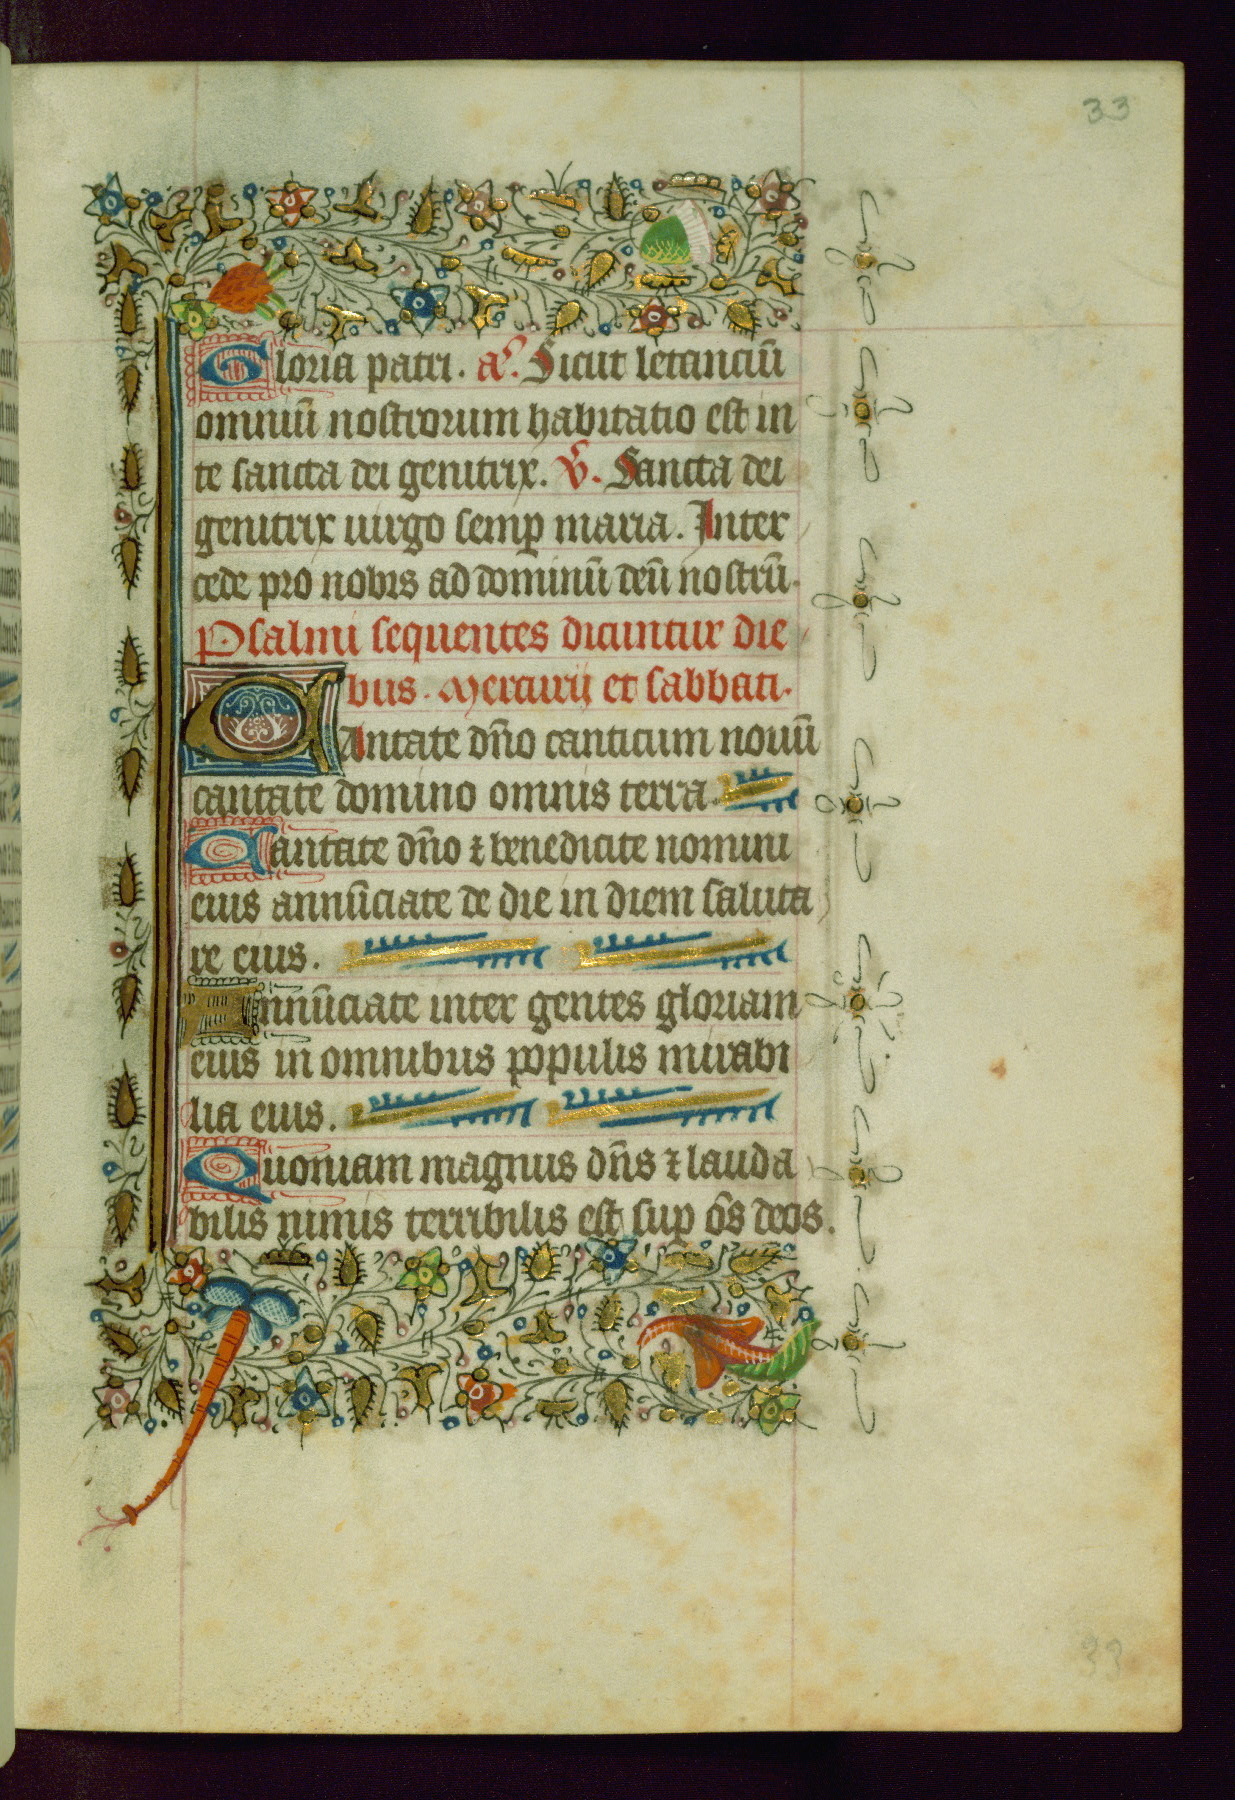 33
Gloria patri. añ. Sicut letanciū
omniū nostrorum habitatio est in
te sancta dei genitrix. V̄. Sancta dei
genitrix uirgo semp̱ maria. Inter
cede pro nobis ad dominū deū nostrū.
Psalmi sequentes dicuntur die
bus. Mercurii et sabbati.
CAntate dn̄o canticum nouū
cantate domino omnis terra.
Cantate dn̄o ⁊ benedicite nomini
eius annūciate de die in diem saluta
re eius.
Annūciate inter gentes gloriam
eius in omnibus populis mirabi
lia eius.
Quoniam magnus dn̄s ⁊ lauda
bilis nimis terribilis est sup̱ ōs deos.
33